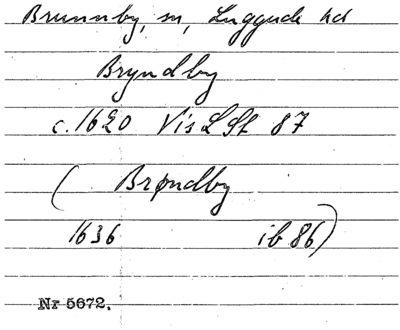 Brunnby, sn, Luggude hd
Bryndby
c. 1620 Vis L St 87
( Brøndby
1636 ib 86)
Nr 5672.